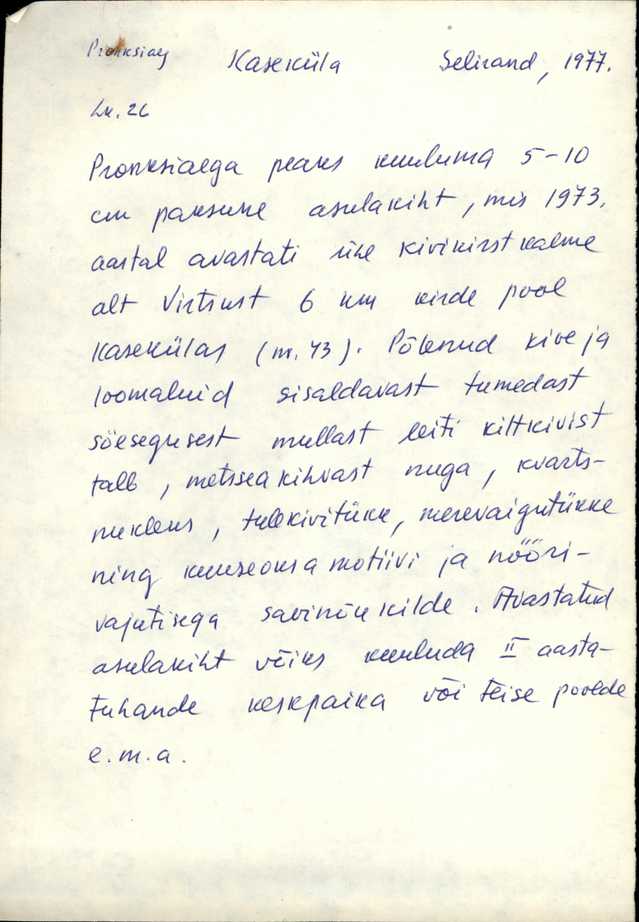 Pronksiaeg Kaseküla Selirand, 1977.
Lk. 26
Pronksiaega peaks kuuluma 5-10
cm paksune asulakiht, mis 1973.
aastal avastati ühe kivikirstkalme
alt Virtsust 6 km kirde pool
Kasekülas (m. 43). Põlenud kive ja
loomaluid sisaldavast tumedast
söesegusest mullast leiti kiltkivist
talb, metsseakihvast nuga, kvarts-
nukleus, tulekivitükk, merevaigutükke
ning kuuseoksa motiivi ja nööri-
vajutisega savinõukilde. Avastatud
asulakiht võiks kuuluda II aasta-
tuhande keskpaika või teise poolde
e.m.a.